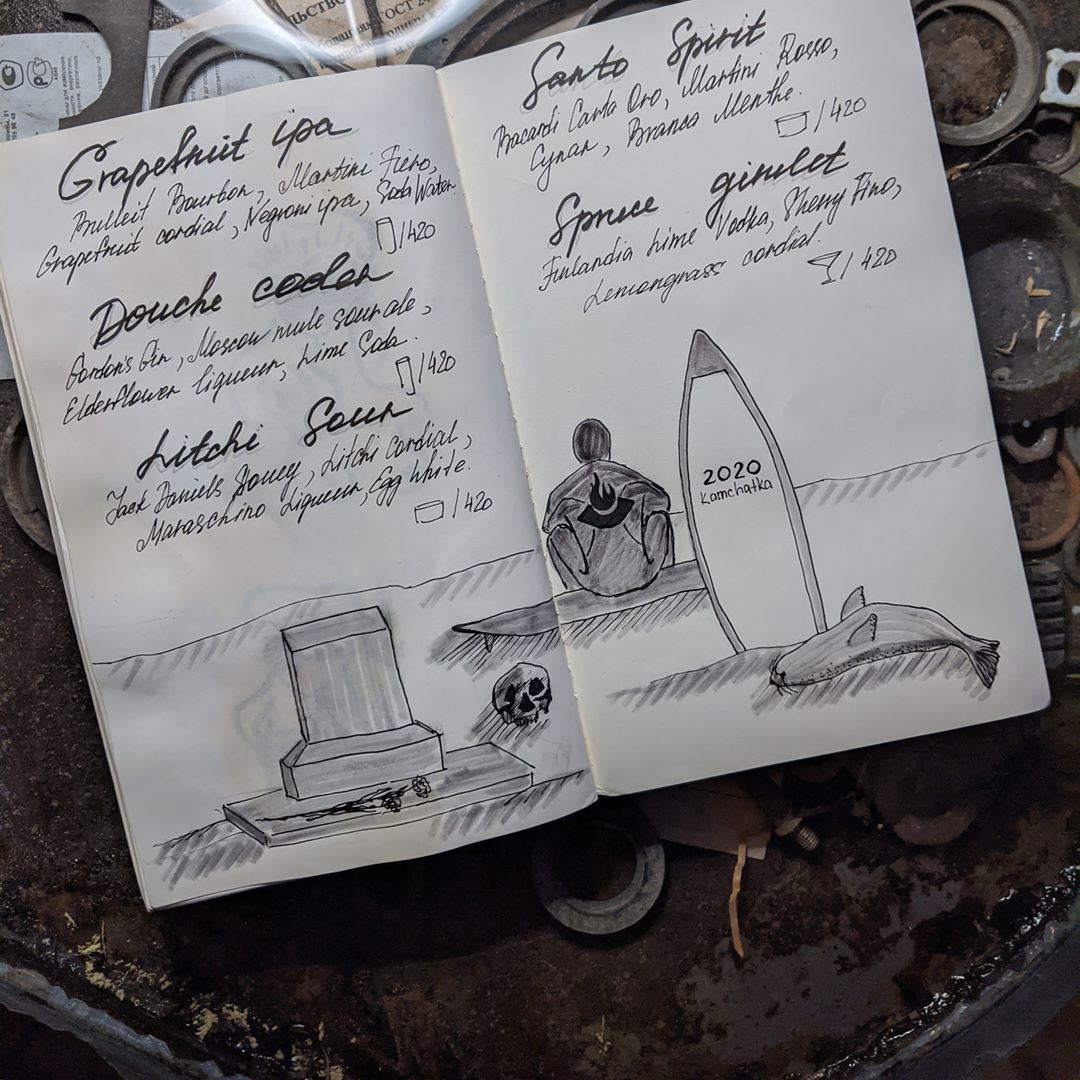 ЛЬСТВО
ГОСТ 2
РСТ
Grapefruit ipa
Bulleit Bourbon, Martini Fiero,
Grapefruit cordial, Negroni ipa, Soda Water.
/420
Douche cooler
Gordon's Gin, Moscow mule sour ale,
Elderflower liqueur, Lime Soda.
/420
Litchi Sour
Jack Daniels Honey, Litchi Cordial,
Maraschino Liqueur, Egg White.
/420
Santo Spirit
Bacardi Carta Oro, Martini Rosso,
Cynar, Branca Menthe.
/420
Spruce gimlet
Finlandia Lime Vodka, Sherry Fino,
Lemongrass cordial.
/420
2020
Kamchatka